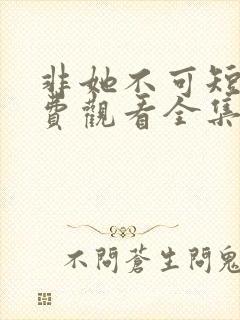 非她不可短
費觀看全集
不問蒼生問鬼